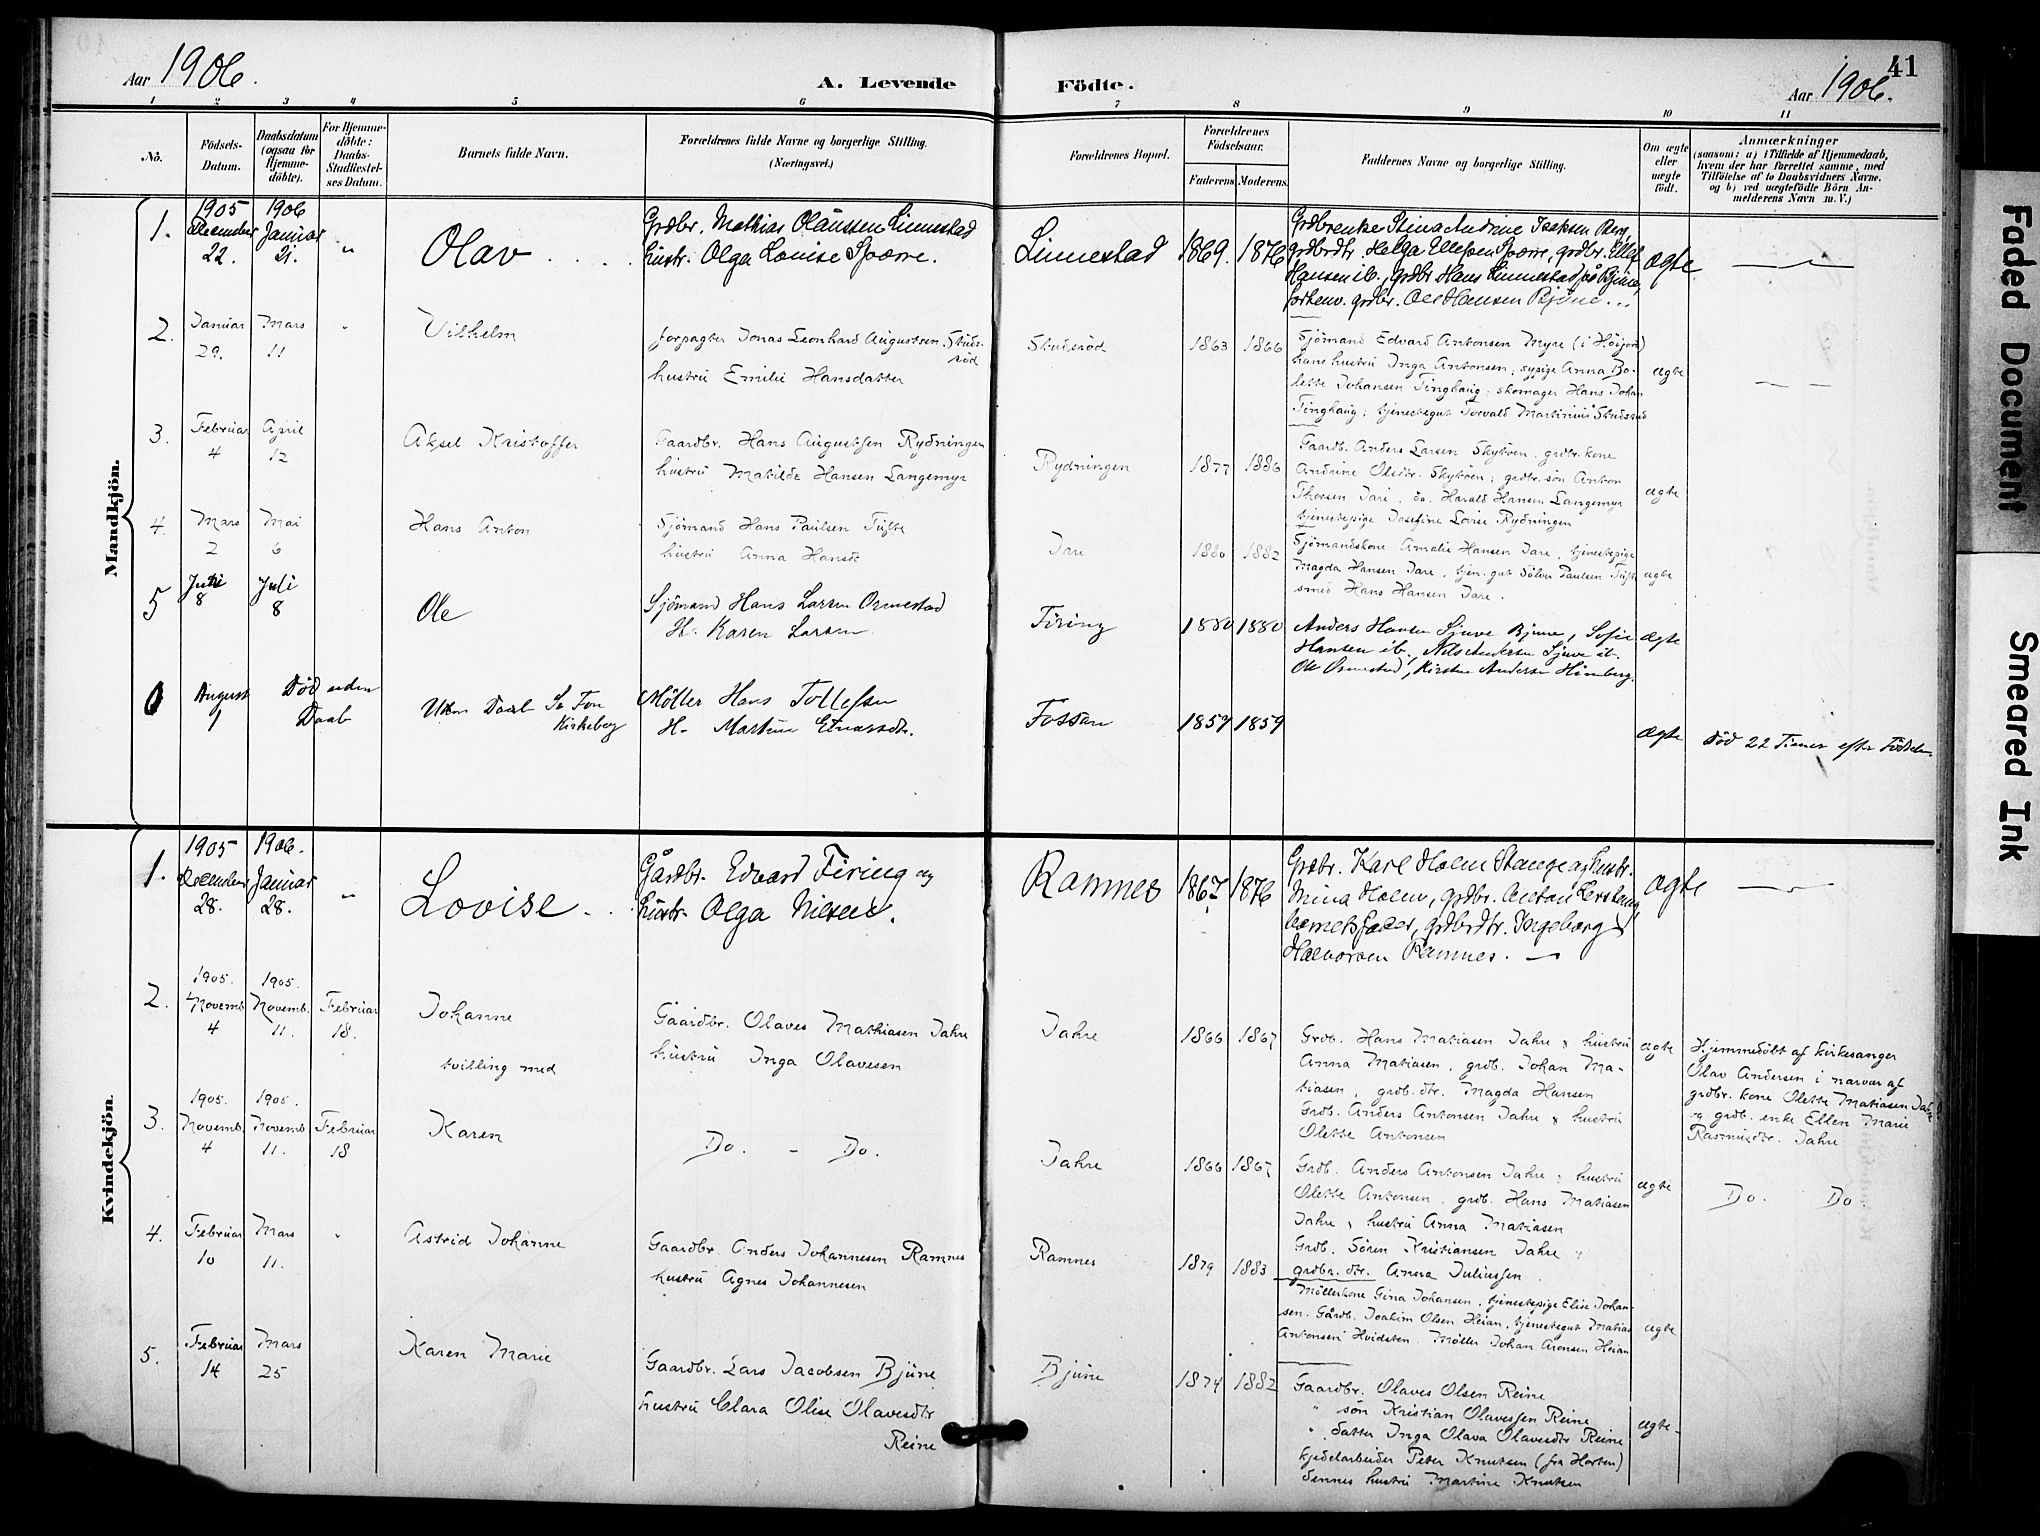 Aar 1906.
A. Levende Födte.
Aar 1906.
41
1 2 3 4 5 6 7 8 9 10 11
No.
Födsels-Datum.
Daabsdatum (ogsaa for Hjemme-döbte).
For Hjemme-döbte: Daabs-Stadfæstel-ses Datum.
Barnets fulde Navn.
Forældrenes fulde Navne og borgerlige Stilling.
(Næringsvei.)
Forældrenes Bopæl.
Forældrenes Födselsaar.
Faderens Moderens
Faddernes Navne og borgerlige Stilling.
Om ægte eller uægte födt.
Anmærkninger
(saasom: a) i Tilfælde af Hjemmedaab,
hvem der har forrettet samme, med
Tilföielse af to Daabsvidners Navne.
og b) ved uægtefödte Börn An-
melderens Navn m. V.)
Mandkjön.
1. 1905 December 22. 1906 Januar 21. "
Olav
Grdbr. Mathias Olaussen Linnestad
hustr. Olga Lovise Sparre.
Linnestad 1869. 1876
Grdbrenke Stina Andrine Isaksen Berg,
grdbrdtr. Helga Ellefsen Sparre, grdbr. Ellef
Hansen ib., grdbr. Hans Linnestad på Bjüne,
forhenv. grdbr. Ole Hansen Bjüne...
ægte
2. Januar 29. Mars 11
Vilhelm
forpagter Jonas Leonhard Augustsen Skuds-
röd
hustru Emilie Hansdatter
Skudsröd 1863 1866
Sjömand Edvard Antonsen Myre (i Höijord)
hans hustru Inga Antonsen; sypige Anna Bo-
lette Johansen Tinghaug; skomager Hans Johan
Tinghaug; tjenestegut Torvald Martinius Skudsröd
ægte
3. Februar 4 April 12
Aksel Kristoffer
Gaardbr. Hans Augustsen Rydningen
hustru Matilde Hansen Langemyr
Rydningen 1877 1886
Gaardb. Anders Larsen Skytöen, grdbr. kone
Andrine Olsdtr. Skytöen; grdbr. sön Anton
Thorsen Jare, do. Harald Hansen Langemyr
tjenestepige Josefine Lovise Rydningen
ægte
4. Mars 2 Mai 6
Hans Anton
Sjömand Hans Paulsen Tufte
hustru Anna Hansdt
Jare 1880 1882
Sjömandskone Amalie Hansen Jare, tjenestepige
Magda Hansen Jare, tjen. gut Sölve Paulsen Tufte
smed Hans Hansen Jare.
ægte
5 Juli 8 Juli 8
Ole
Sjömand Hans Larsen Ormestad
H. Karen Larsen
Firing 1880 1880
Anders Hansen Sjuve Bjune, Sofie
Hansen ib., Nils Andersen Sjuve ib.
Ole Ormestad, Kirsten Andersen Himberg.
ægte
6 August 1 Död uden Daab
Uden Daab Se Fon
Kirkebog
Møller Hans Tollefsen
H. Martine Einarsdtr.
Fossan 1857 1859
ægte
Död 22 Timer efter Födselen.
Kvindekjön.
1. 1905 December 28. 1906. Januar 28. "
Lovise
Gårdbr. Edvard Firing og
hustr. Olga Nilsen.
Ramnes 1867 1876
Grdbr. Karl Holm Stange og hustr.
Mina Holm, grdbr. Anton
barnets fader, grdbrdtr. Ingeborg
Halvorsen Ramnes.
ægte
2. 1905. Novemb. 4 1905. Novemb. 11. Februar 18.
Johanne
tvilling med
Gaardbr. Olaves Mathiasen Jahre
hustru Inga Olavesen
Jahre 1866 1867
Grdb. Hans Matiasen Jahre & hustru
Anna Matiasen, grdb. Johan Ma-
tiasen, grdb. dtr. Magda Hansen
Grdb. Anders Antonsen Jahre & hustru
Olette Antonsen
ægte
Hjemmedöbt af kirkesanger
Olav Andersen i nærvær af
grdbr. kone Olette Matiasen Jahre
og grdb. enke Ellen Marie
Rasmusdtr. Jahre
3. 1905. Novemb. 4 1905. Novemb. 11. Februar 18
Karen
Do. - Do.
Jahre 1866 1867
Grdb. Anders Antonsen Jahre & hustru
Olette Antonsen, grdb. Hans Matiasen
Jahre & hustru Anna Matiasen
Grdb. Sören Kristiansen Jahre &
grdbr. dtr. Anna Juliussen
ægte
Do. Do.
4. Februar 10 Mars 11.
Astrid Johanne
Gaardbr. Anders Johannesen Ramnes
hustru Agnes Johannesen
Ramnes 1879 1883
Möllerkone Gina Johansen, tjenestepige Elise Johan-
sen. Gårdb. Joakim Olsen Heian, tjenestegut Matias
Antonsen Hvidsten. Møller Johan Aronsen Heian
ægte
5. Februar 14 Mars 25
Karen Marie
Gaardbr. Lars Jacobsen Bjüne
hustru Clara Olise Olavesdtr
Reine
Bjüne 1874 1882
Gaardbr. Olaves Olsen Reine
" sön Kristian Olavessen Reine
" datter Inga Olava Olavesdtr Reine
kjedelarbeider Peter Knutsen (fra Horten)
dennes hustru Martine Knutsen
ægte
Faded Document
Smeared Ink